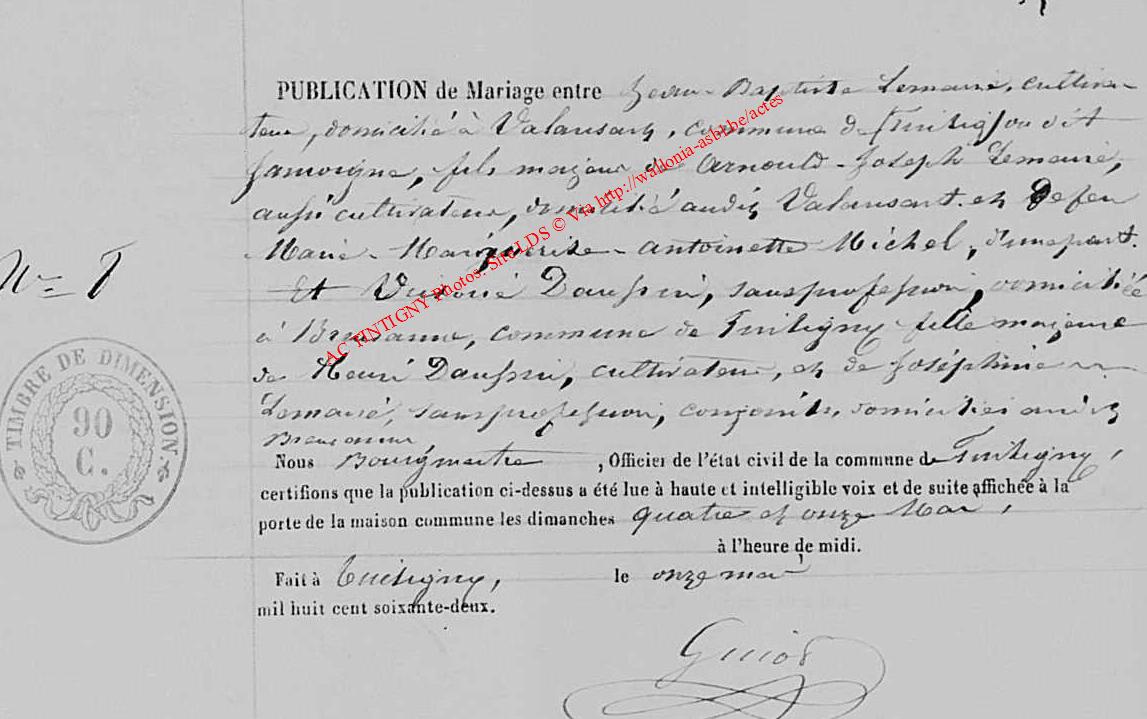 PUBLICATION de Mariage entre Jean-Baptiste Lemaire, cultiva-
teur, domicilié à Valansart, commune de
Jamoigne, fils majeur de Arnould-Joseph Lemaire,
aussi cultivateur, domicilié audit Valansart et De feu
Marie-Marguerite-Antoinette Michel, d'une part
Et Victorie Dauphin, sans profession, domiciliée
à commune de Tintigny fille majeure
de Henri Dauphin, cultivateur, et de Joséphine
Lemaire, sans profession, conjoints, domiciliés audit
N°
TIMBRE DE DIMENSION
90
C.
Nous Bourgmestre, Officier de l'état civil de la commune de Tintigny,
certifions que la publication ci-dessus a été lue à haute et intelligible voix et de suite affichée à la
porte de la maison commune les dimanches quatre et onze Mai,
à l'heure de midi.
Fait à Tintigny, le onze mai
mil huit cent soixante-deux.
AC TINTIGNY Photos: Site LDS © Via http://wallonia-asbl.be/actes